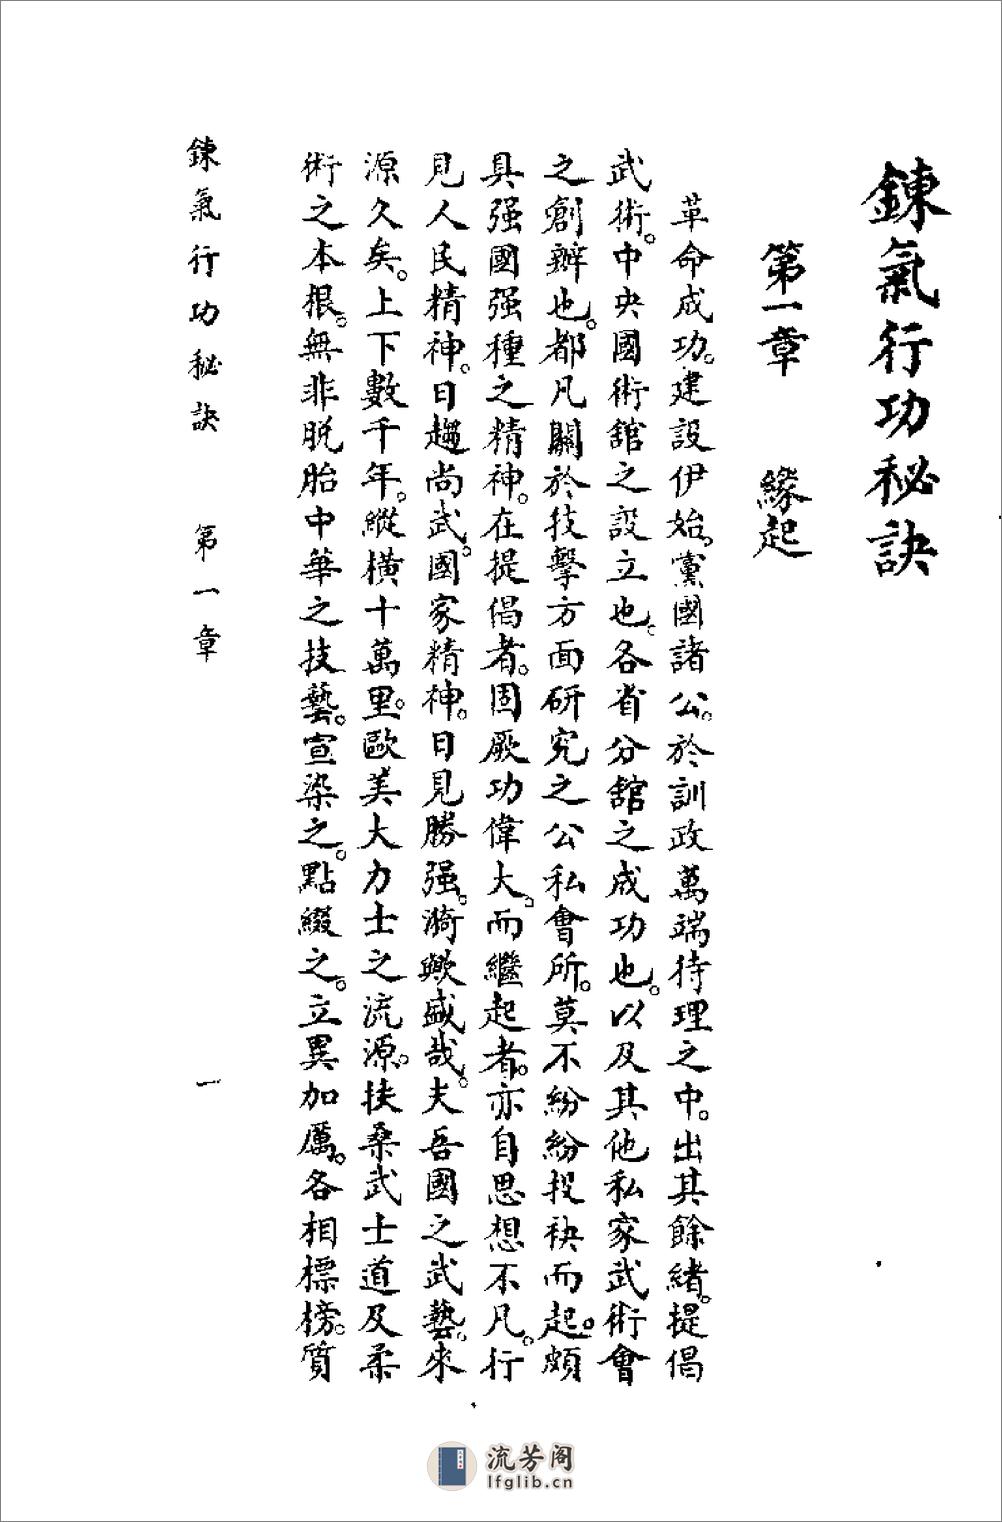 鍊氣行功秘訣
第一章　緣起
革命成功。建設伊始。黨國諸公。於訓政萬端待理之中。出其餘緒。提倡
武術。中央國術舘之設立也。各省分舘之成功也。以及其他私家武術會
之創辦也。都凡關於技擊方面研究之公私會所。莫不紛紛投袂而起。頗
具强國强種之精神。在提倡者。固厥功偉大。而繼起者。亦自思想不凡。行
見人民精神。日趨尚武。國家精神。日見勝强。漪歟盛哉。夫吾國之武藝。來
源久矣。上下數千年。縱橫十萬里。歐美大力士之流源。扶桑武士道及柔
術之本根。無非脫胎中華之技藝。宣染之。點綴之。立異加厲。各相標榜。質
鍊氣行功秘訣　第一章　一
流芳阁
lfglib.cn